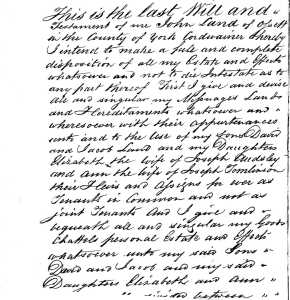 This is the last Will and
Testament of me John Land of Ossett
in the County of York Cordwainer Whereby
I intend to make a full and complete
disposition of all my Estate and Effects
whatsoever and not to die Intestate as to
any part thereof First I give and devise
all and singular my Messuages Land
and Hereditaments whatsoever and
wheresoever with their Appurtenances
unto and to the use of my Sons David
and Jacob Land and my Daughters
Elizabeth the wife of Joseph
and Ann the wife of Joseph Tomlinson
their Heirs and Assigns for ever as
Tenants in Common and not as
joint Tenants And I give and
bequeath all and singular my Goods
Chattels personal Estate and Effects
whatsoever unto my said Sons
David and Jacob and my said
Daughters Elizabeth and Ann
divided between